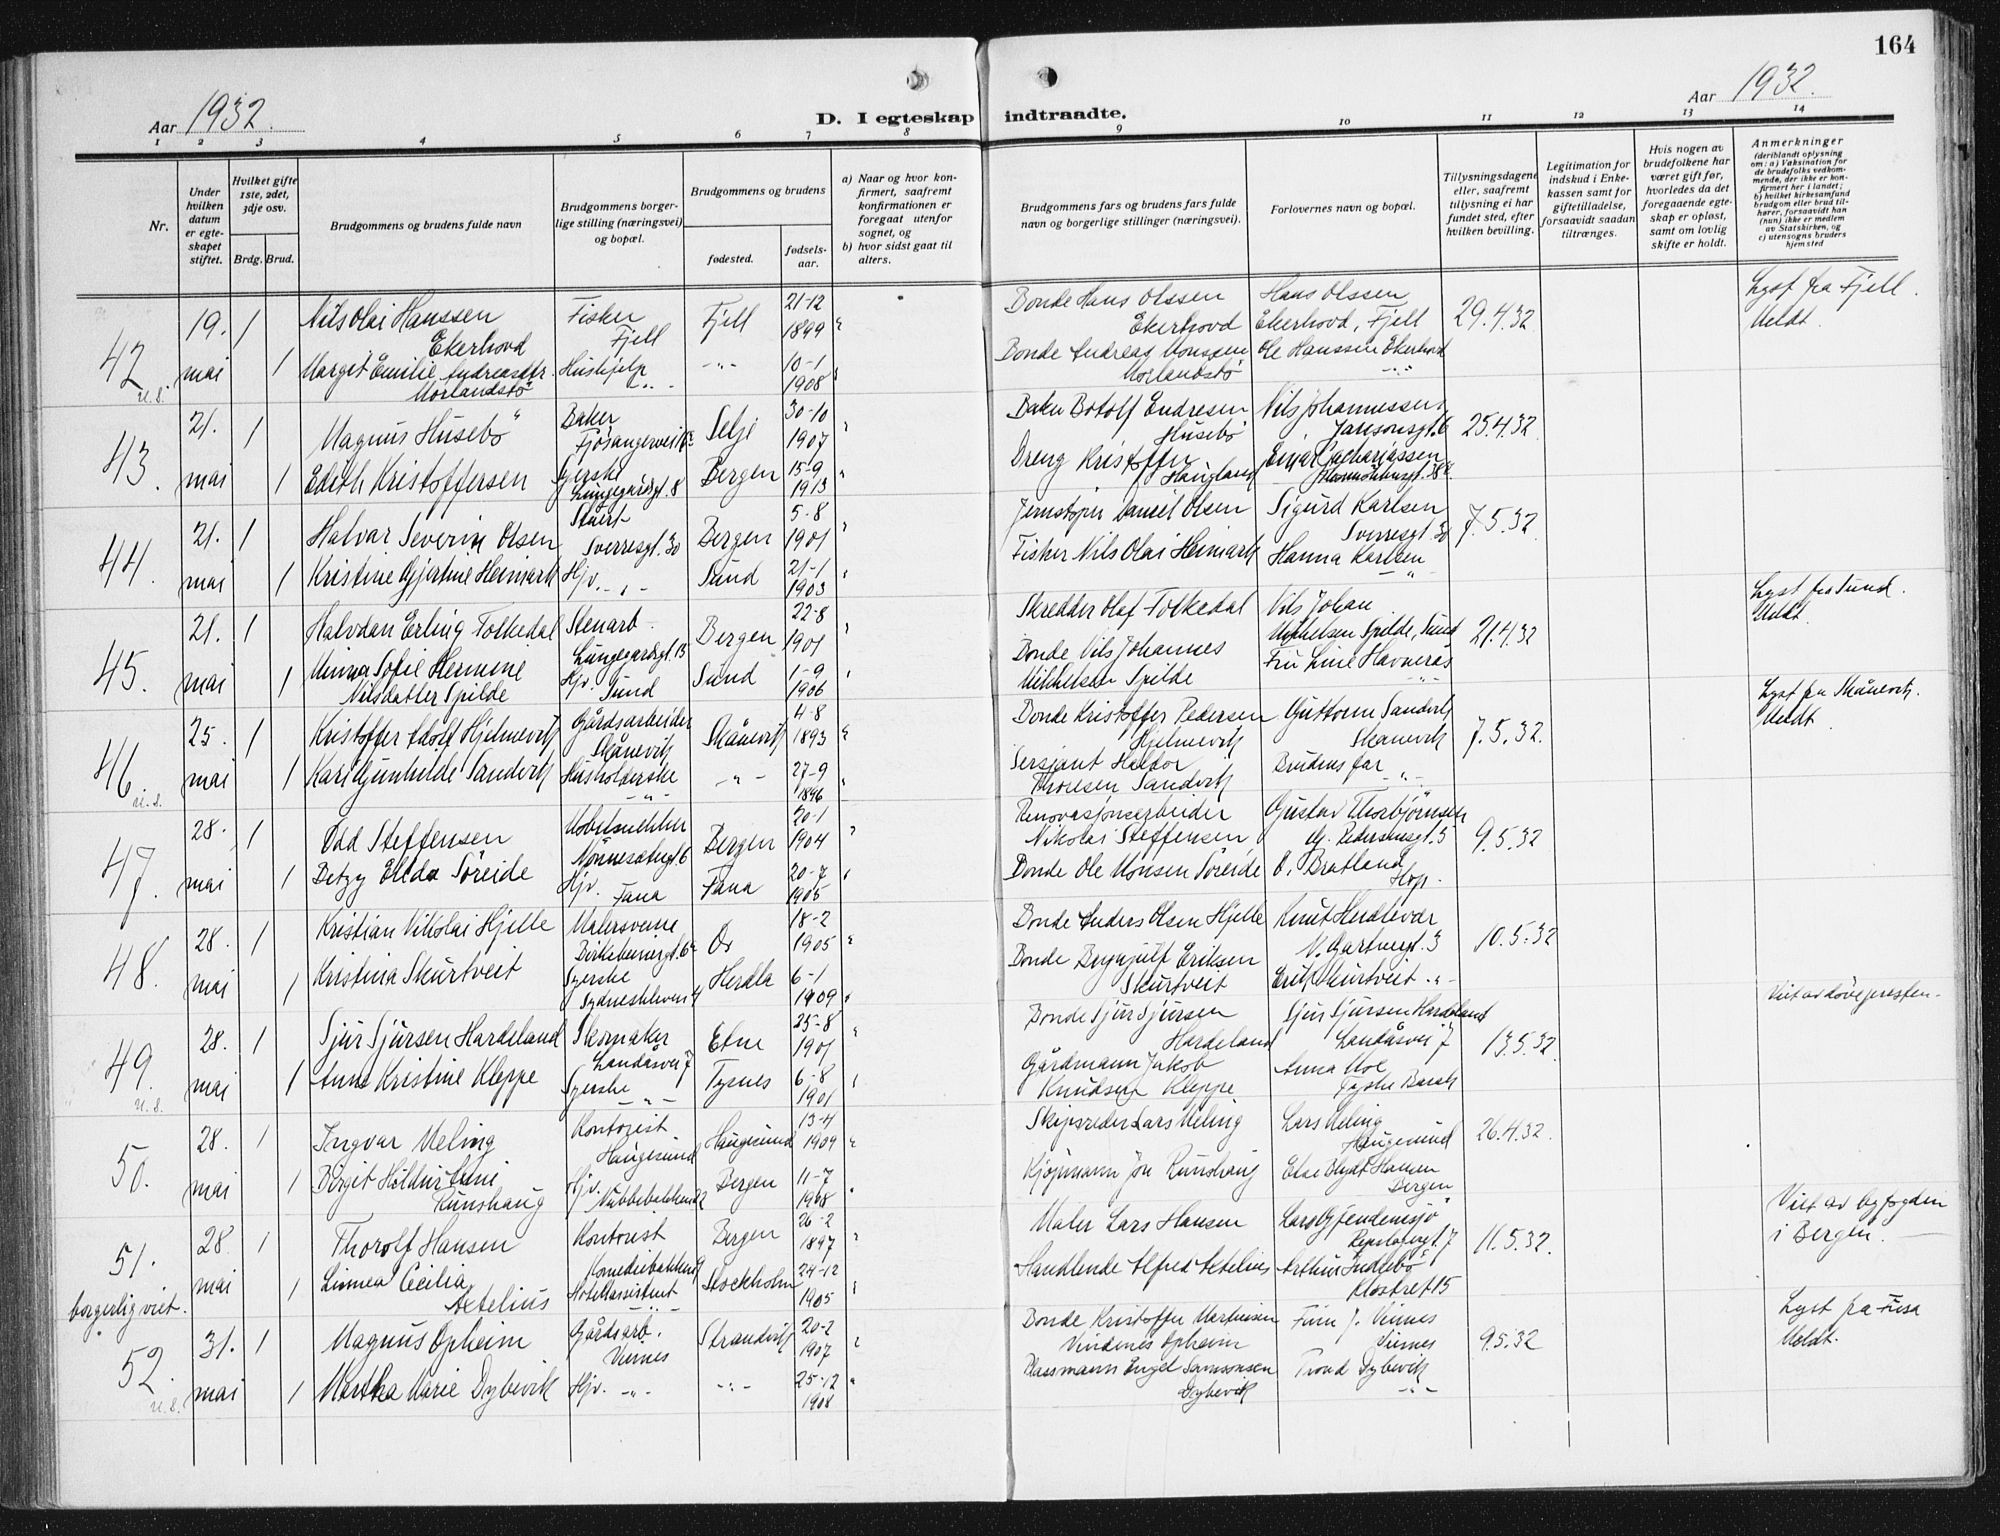 164
Aar 1932.
D. I egteskap indtraadte.
Aar 1932.
1 2 3 4 5 6 7 8 9 10 11 12 13 14
Nr.
Under hvilken datum er egteskapet stiftet.
Hvilket gifte 1ste, 2det, 3dje osv.
Brdg. Brud.
Brudgommens og brudens fulde navn
Brudgommens borgerlige stilling (næringsvei) og bopæl.
Brudgommens og brudens
fødested.
fødselsaar.
a) Naar og hvor konfirmert, saafremt konfirmationen er foregaat utenfor sognet, og
b) hvor sidst gaat til alters.
Brudgommens fars og brudens fars fulde navn og borgerlige stillinger (næringsvei).
Forlovernes navn og bopæl.
Tillysningsdagene eller, saafremt tillysning ei har fundet sted, efter hvilken bevilling.
Legitimation for indskud i Enkekassen samt for giftetilladelse, forsaavidt saadan tiltrænges.
Hvis nogen av brudefolkene har været gift før, hvorledes da det foregaaende egteskap er opløst, samt om lovlig skifte er holdt.
Anmerkninger
(deriblandt oplysning om: a) Vaksination for de brudefolks vedkommende, der ikke er konfirmert her i landet; b) hvilket kirkesamfund brudgom eller brud tilhører, forsaavidt han (hun) ikke er medlem av Statskirken, og c) utensogns bruders hjemsted
42 u.s.
19. mai 1
Nils Olai Hanssen Ekerhovd
Fisker Fjell
Fjell
21-12 1899
Bonde Hans Olssen Ekerhovd
Hans Olssen Ekerhovd, Fjell
29.4.32
Lyst fra Fjell.
Meldt.
1
Marget Emilie Andreasdtr. Morlandstö
Hushjelp
-"-
10-1 1908
Bonde Andreas Monssen Morlandstö
Ole Hanssen Ekerhovd
43.
21. mai 1
Magnus Husebö
Baker
Selje
30-10 1907
Baker Botolf Endresen Husebö
Nils Johannessen
Jansonsgt. 6
25.4.32
1
Edith Kristoffersen
Syerske
Lungegårdsgt. 8
Bergen
15-9 1913
Dreng Kristoffer Haugland
Einar Zachariassen
44.
21. mai 1
Halvar Severin Olsen
Stuert
Sverresgt. 30
Bergen
5-8 1901
Daniel Olsen
Sigurd Karlsen
Sverresgt. 30
7.5.32
1
Kristine Gjertine Heimark
Hjv. -"-
Sund
21-1 1903
Fisker Nils Olai Heimark
Hanna Karlsen
45.
21. mai 1
Halvdan Erling Folkedal
Stenarb.
Lungegårdsgt. 13
Bergen
22-8 1901
Skredder Olaf Folkedal
Nils Johan
Mikkelsen Spilde, Sund
21.4.32
Lyst fra Sund.
Meldt.
1
Minna Sofie Hermine
Nilsdatter Spilde
Hjv. Sund
Sund
1-9 1906
Bonde Nils Johannes
Mikkelsen Spilde
Fru Line Havnerås
46. u.s.
25. mai 1
Kristoffer Adolf Hjelmevik
Gårdsarbeider
Skånevik
Skånevik
4-8 1893
Bonde Kristoffer Pedersen
Hjelmevik
Guttorm Sandvik
Skånevik
7.5.32.
Lyst fra Skånevik.
Meldt.
1
Kari Gunhilde Sandvik
Husholderske
-"-
27-9 1896
Sersjant Haldor
Thoresen Sandvik
Brudens far
47.
28. mai 1
Odd Steffensen
Möbelsnekker
Nonnesetergt 6
Bergen
20-1 1904
Renovasjonsarbeider
Nikolai Steffensen
Gustav Thorbjørnsen
9.5.32
1
Betzy Elida Söreide
Hjv. Fana
Fana
20-7 1905
Bonde Ole Monsen Söreide
O. Bratland
Hop.
48.
28. mai 1
Kristian Nikolai Hjelle
Malersvenn
Birkebeinergt. 6
Os
18-2 1905
Bonde Anders Olsen Hjelle
Knut Herdlevær
10.5.32
1
Kristina Skurtveit
Syerske
Herdla
6-1 1909
Bonde Brynjulf Eriksen
Skurtveit
Erik Skurtveit -"-
49. u.s.
28. mai 1
Sjur Sjursen Hardeland
Skomaker
Landåsvei 7
Etne
25-8 1901
Bonde Sjur Sjursen
Hardeland
Sjur Sjursen Hardeland
Landåsvei 7
13.5.32.
Viet av dövepresten.
1
Anne Kristine Kleppe
Syerske
-"-
Tysnes
6-8 1901
Gårdmann Jakob
Knudsen Kleppe
Anna Moe
50.
28. mai 1
Ingvar Meling
Kontorist
Haugesund
Haugesund
13-4 1909
Skipsreder Lars Meling
Lars Meling
Haugesund
26.4.32.
1
Birgit Hildur
Runshaug
Hjv.
Nubbebakken 2
Bergen
11-7 1908
Kjøpmann Jon Runshaug
Hansen
Bergen
51. borgerlig viet.
28. mai 1
Thorolf Hansen
Kontorist
Bergen
26-2 1897
Maler Lars Hansen
11.5.32.
Viet av byfogden
i Bergen.
1
Linnea Cecilia
Axtelius
Hotellassistent
Stockholm
24-12 1905
Handlende Alfred Axtelius
Arthur Indsebö
Klostret 15
52. u.s.
31. mai 1
Magnus Opheim
Gårdsarb.
Vinnes
Strandvik
20-2 1907
Bonde Kristoffer Martinsen
Vindenes Opheim
Finn J. Vinnes
Vinnes
9.5.32
Lyst fra Fusa
Meldt.
1
Martha Marie Dybevik
Hjv. -"-
-"-
25-12 1908
Plassmann Engel Samsonsen
Dybevik
Trond Dybevik
-"-